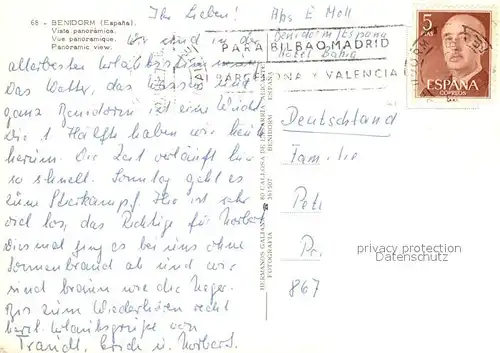 68 - BENIDORM (España).
Vista panorámica.
Vue panoramique.
Panoramic view.
Ihr Lieben! Abs E Moll
Benidorm Espana
Hotel Bahia
PARA BILBAO, MADRID
BARCELONA Y VALENCIA
5
PTAS
ESPAÑA
CORREOS
Wir sind in der
allerbesten Urlaubsstimmung
Das Wetter, das Wasser und
ganz Benidorm ist eine Wucht
Die 1 Hälfte haben wir heute
herum. Die Zeit verläuft
so schnell. Sonntag geht es
zum Stierkampf. Hier ist sehr
viel los, das Richtige für Norbert
Diesmal ging es bei uns ohne
Sonnenbrand ab und wir
sind braun wie die Neger.
Bis zum Wiederhören recht
herzl. Urlaubsgrüße von
Traudl, Erich u. Norbert.
HERMANOS GALIANA
FOTOGRAFIA
BENIDORM
ESPAÑA
Deutschland
Familie
Pet
Pr
867
privacy protection
Datenschutz